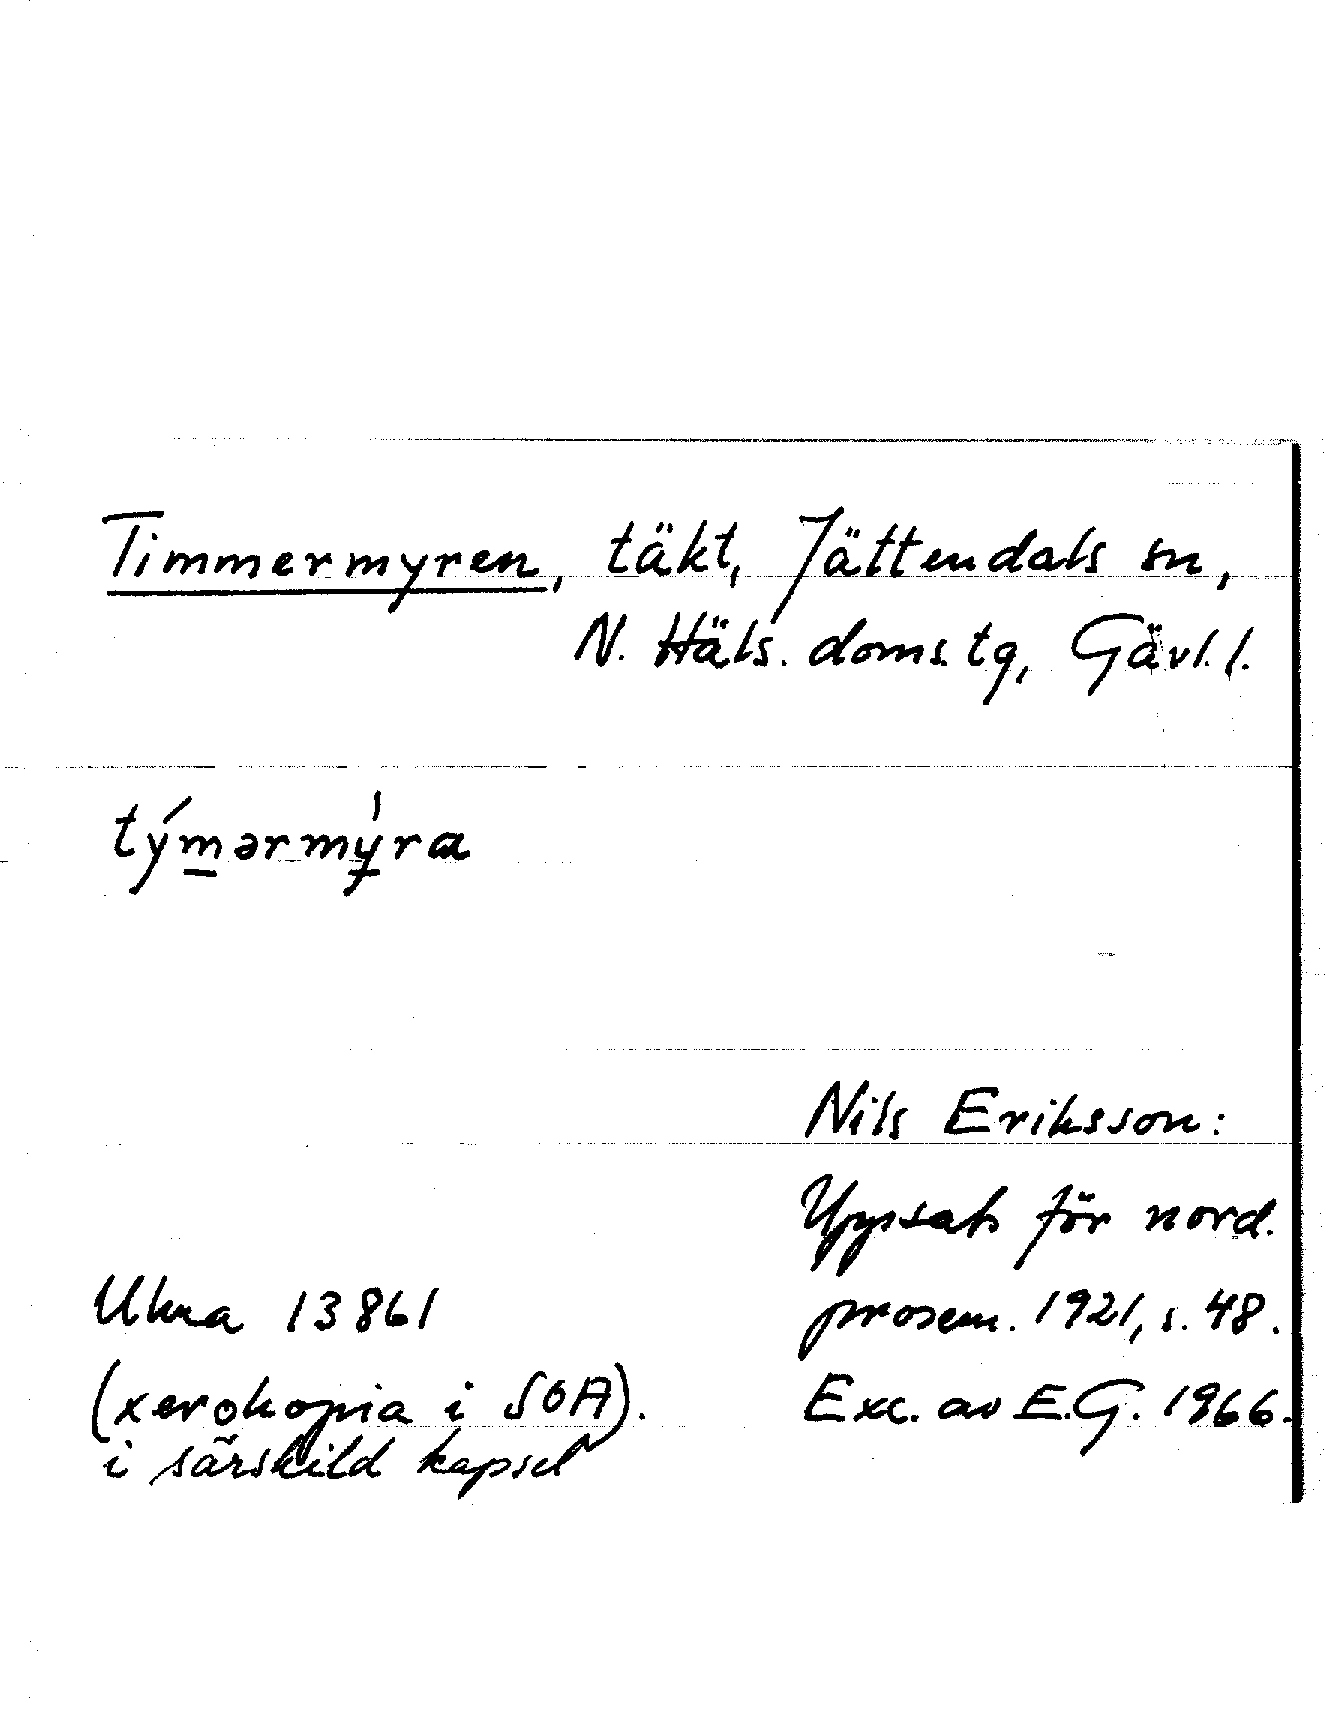 Timmermyren, täkt, Jättendals sn,
N. Häls. doms. tg, Gävl. l.
týmərmýra
Nils Eriksson:
Uppsats för nord.
prosem. 1921, s. 48.
Exc. av E.G. 1966.
Ulma 13861
(xerokopia i SOA).
i särskild kapsel